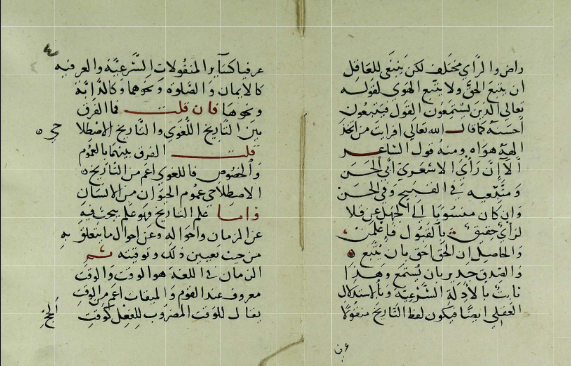 داض والرأي مختلف لكن ينبغي للعاقل
ان يتبع الحق ولا يتبع الهوى لقوله
تعالى الذين يستمعون القول فيتبعون
احسنه كما قال الله تعالى افرايت من اتخذ
الهه هواه ومنه قول الشاعر
الا ان رأي الاشعري ابي الحسن
ومتبعيه في القبيح وفي الحسن
وان كان منسوبا الى الجهل عن قلا
لرأي حقيق بالقبول فاعلمن
والحاصل ان الحق احق بان يتبع
والصدق جدير بان يستمع وهذا
ثابت بالادلة الشرعية وبالاستدلال
العقلي ايضا فيكون لفظ التاريخ منقولا
عرفيا كسائر المنقولات الشرعية والعرفية
كالايمان والصلوة ونحوهما وكالدابة
ونحوها فان قلت فما الفرق
بين التاريخ اللغوي والتاريخ الاصطلا
حي
قلت الفرق بينهما بالعموم
والخصوص فاللغوي اعم من التاريخ
الاصطلاحي عموم الحيوان من الانسان
واما علم التاريخ فهو علم يبحث فيه
عن الزمان واحواله وعن احوال ما يتعلق به
من حيث تعيين ذلك وتوقيته ثم
الزمان في اللغة هو الوقت والوقت
معروف عند القوم والميقات اعم من الوقت
يقال للوقت المضروب للفعل كوقت
الحج